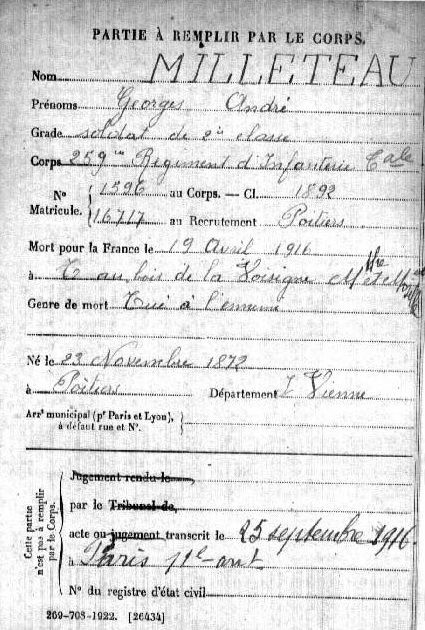 PARTIE À REMPLIR PAR LE CORPS.
Nom MILLETEAU
Prénoms Georges André
Grade soldat de 2e classe
Corps 259me Régiment d'Infanterie Cale
N° Matricule. 1596 au Corps. — Cl. 1892
16717 au Recrutement Poitiers
Mort pour la France le 19 Avril 1916
à au bois de la Voisogne Mthe et Mo
Genre de mort Tué à l'ennemi
Né le 23 Novembre 1872
à Poitiers Département Vienne
Arrt municipal (pr Paris et Lyon),
à défaut rue et N°.
Cette partie n'est pas à remplir par le Corps.
Jugement rendu le
par le Tribunal de
acte ou jugement transcrit le 25 septembre 1916
à Paris 11e arrt
N° du registre d'état civil
269-708-1922. [26434]